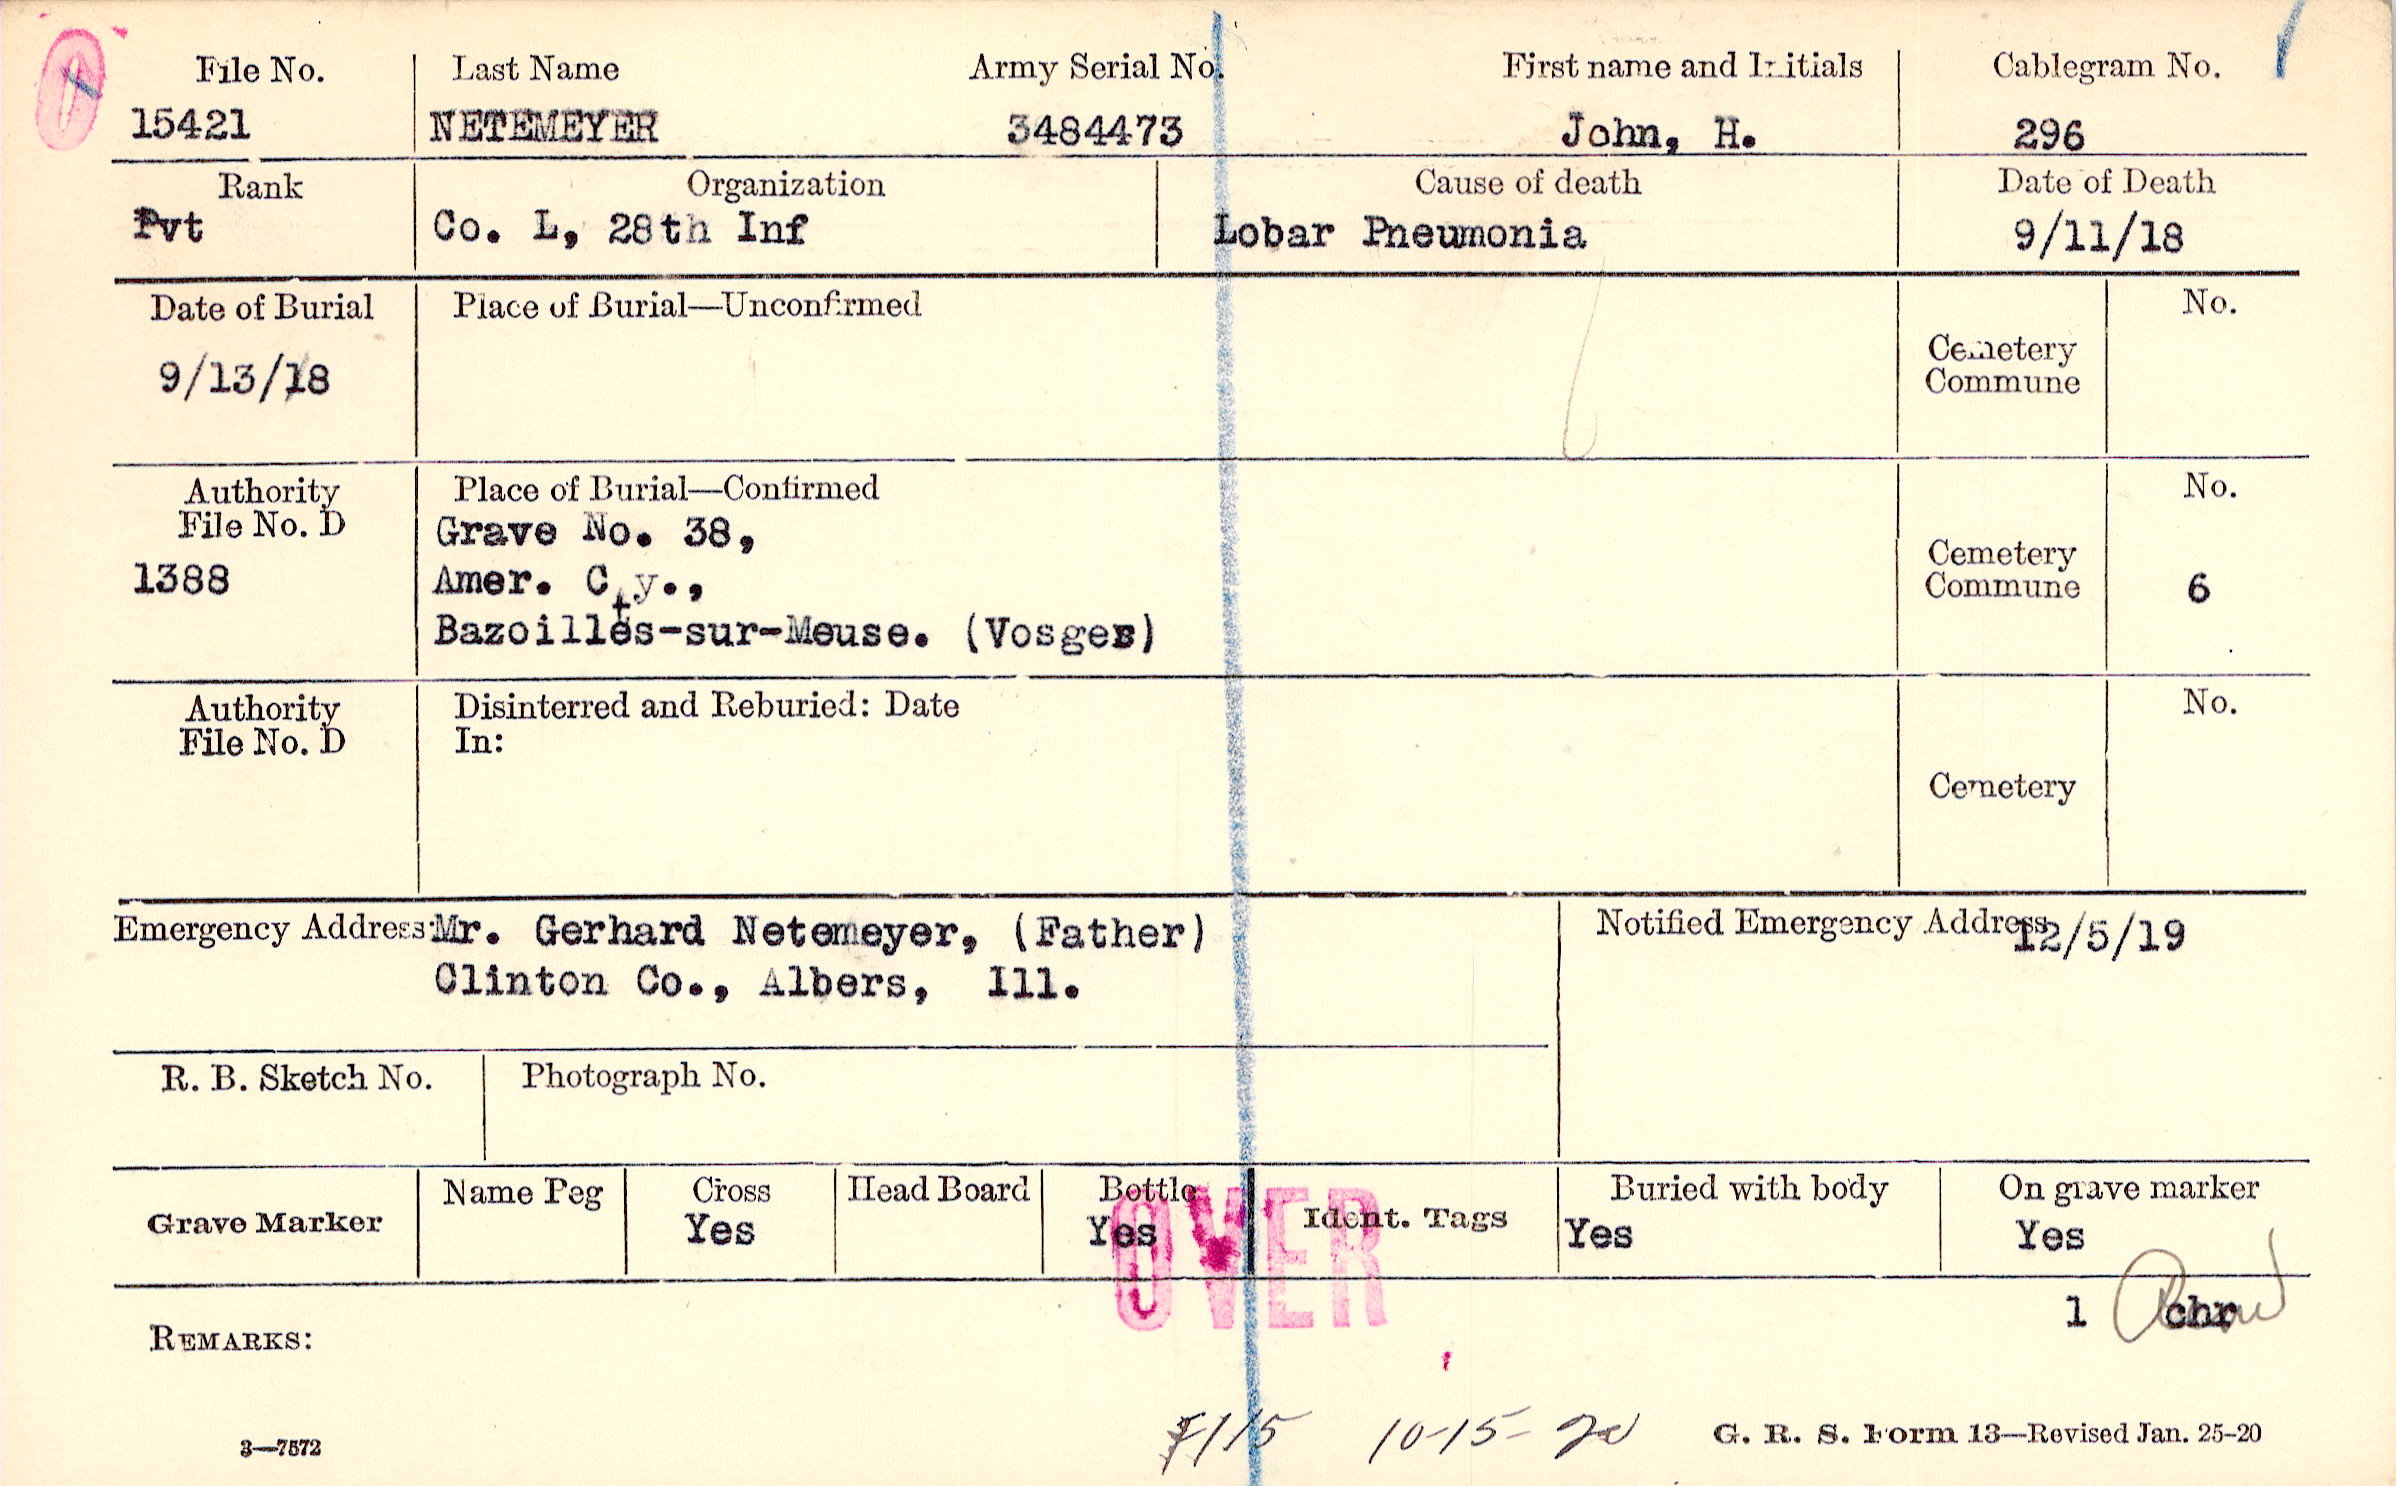 File No. Last Name Army Serial No. First name and Initials Cablegram No.
15421 NETEMEYER 3484473 John, H. 296
Rank Organization Cause of death Date of Death
Pvt Co. L, 28th Inf Lobar Pneumonia 9/11/18
Date of Burial Place of Burial—Unconfirmed No.
9/13/18 Cemetery
Commune
Authority Place of Burial—Confirmed No.
File No. D Grave No. 38,
1388 Amer. Cty., Cemetery
Commune 6
Bazoilles-sur-Meuse. (Vosges)
Authority Disinterred and Reburied: Date No.
File No. D In:
Cemetery
Emergency Address: Mr. Gerhard Netemeyer, (Father) Notified Emergency Address 12/5/19
Clinton Co., Albers, Ill.
R. B. Sketch No. Photograph No.
Name Peg Cross Head Board Bottle Buried with body On grave marker
Grave Marker Yes Yes Ident. Tags Yes Yes
OVER
1 chr
REMARKS:
10-15-20
3—7572 G. R. S. Form 13—Revised Jan. 25-20